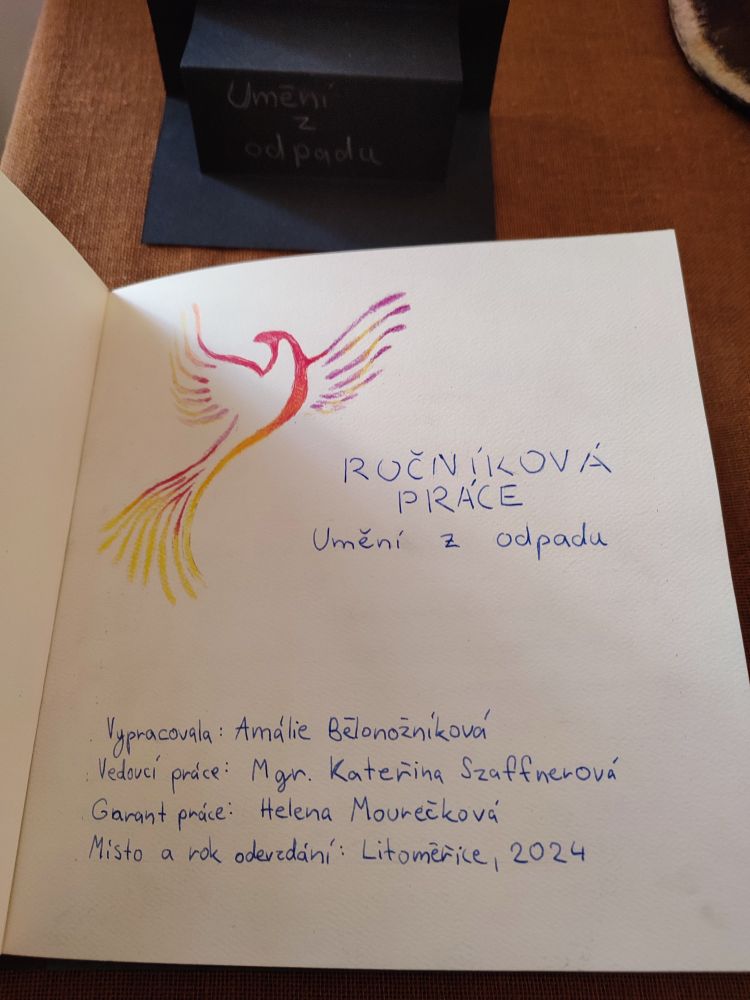 Umění
z
odpadu
ROČNÍKOVÁ
PRÁCE
Umění z odpadu
Vypracovala: Amálie Bělonožníková
Vedoucí práce: Mgr. Kateřina Szaffnerová
Garant práce: Helena Mourečková
Místo a rok odevzdání: Litoměřice, 2024